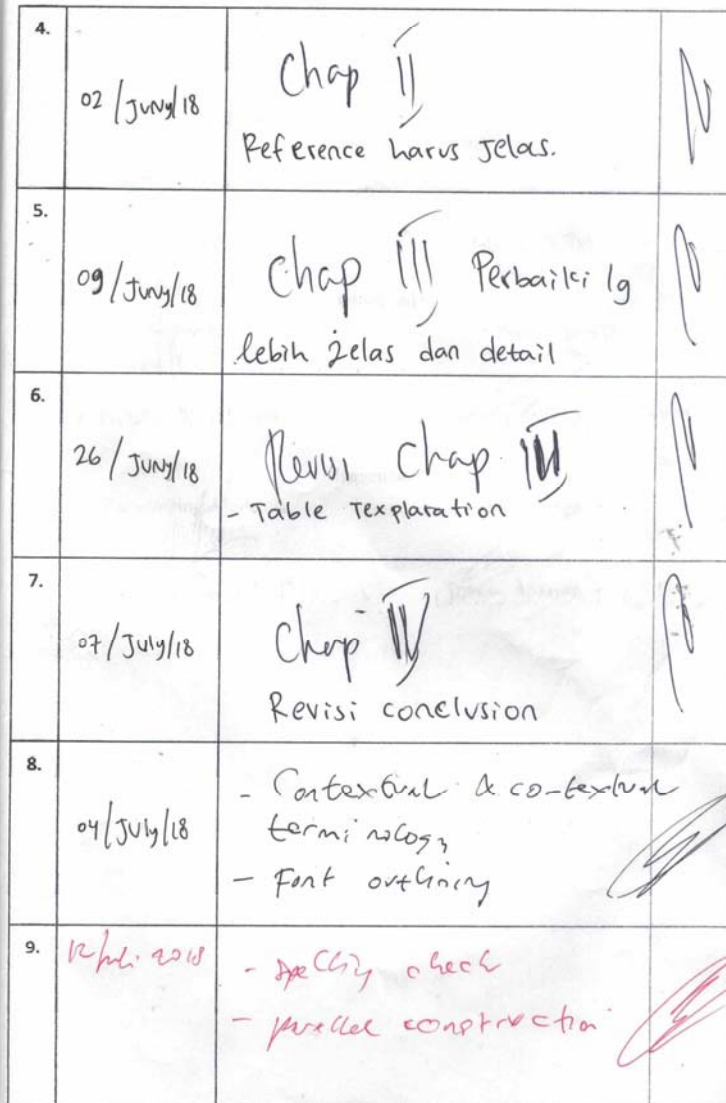 4.
02/Juny/18
Chap II
Reference harus jelas.
5.
09/Juny/18
Chap III Perbaiki lg
lebih jelas dan detail
6.
26/Juny/18
Revisi Chap III
- Table
7.
07/July/18
Chap IV
Revisi conclusion
8.
04/July/18
- Contextual & co-textual
terminology
- Font outlining
9.
12 Juli 2018
- spelling check
- parallel construction